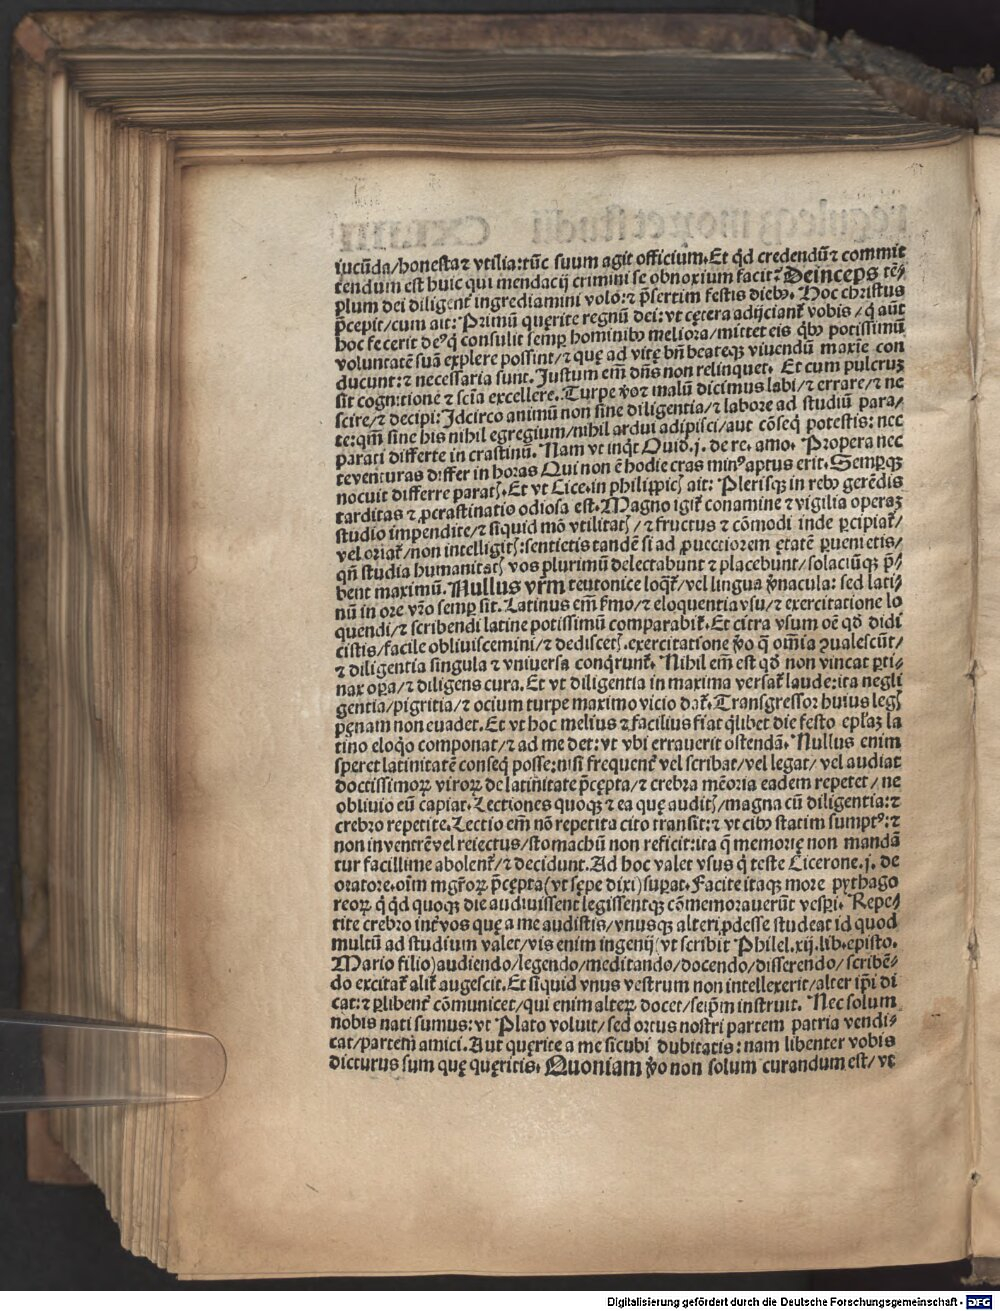 iucūda/honesta⁊ vtilia:tūc suum agit officium.Et qd credendū⁊ commit
tendum est huic qui mendacij crimini se obnoxium facit? Deinceps tē⸗
plum dei diligent ingrediamini volo:⁊ p̄sertim festis diebꝰ. Hoc christus
p̄cepit/cum ait: Primū quęrite regnū dei: vt cętera adijciant vobis/q aūt
hoc fecerit deꝰq̄ consulit semp hominibꝰ meliora/mittet eis qbꝰ potissimū
voluntatē suā explere possint/⁊ que ad vitę bn̄ beateqꝫ viuendū maxīe con
ducunt:⁊ necessaria sunt. Justum em̄ dn̄s non relinquet. Et cum pulcruꝫ
sit cognitione ⁊ scīa excellere. Turpe ꝟo⁊ malū dicimus labi/⁊ errare/⁊ ne
scire/⁊ decipi: Idcirco animū non sine diligentia/⁊ labore ad studiū para/
te:qm̄ sine his nihil egregium/nihil ardui adipisci/aut cōseq potestis: nec
parati differte in crastinū. Nam vt inqt Ouid.j. de re. amo. Propera nec
te venturas differ in horas Qui non ē hodie cras minꝰ aptus erit. Sempqꝫ
nocuit differre paratꝭ. Et vt Cice.in philippicꝭ ait: Plerisqꝫ in rebꝰ gerēdis
tarditas ⁊ ꝓcrastinatio odiosa est. Magno igit conamine ⁊ vigilia operaꝫ
studio impendite/⁊ siquid mō vtilitatꝭ/⁊ fructus ⁊ cōmodi inde ꝑcipiat/
vel oriat/non intelligitꝭ:sentietis tandē si ad ꝓuectiorem ętatē ꝑuenietis/
qn̄ studia humanitatꝭ vos plurimū delectabunt ⁊ placebunt/solaciūqꝫ p̄⸗
bent maximū. Nullus vr̄m teutonice loqt/vel lingua ꝟnacula: sed lati⸗
nū in ore vr̄o semp sit. Latinus em̄ ẜmo/⁊ eloquentia vsu/⁊ exercitatione lo
quendi/⁊ scribendi latine potissimū comparabit. Et citra vsum oē qd didi
cistis/facile obliuiscemini/⁊ dediscetꝭ.exercitatione ꝟo q̄ om̄ia ꝯualescūt/
⁊ diligentia singula ⁊ vniuersa conqrunt. Nihil em̄ est qd non vincat ꝑti⸗
nax oꝑa/⁊ diligens cura. Et vt diligentia in maxima versat laude:ita negli
gentia/pigritia/⁊ ocium turpe maximo vicio dat. Transgressor huius legꝭ
pęnam non euadet. Et vt hoc melius ⁊ facilius fiat qlibet die festo epl̄aꝫ la
tino eloqo componat/⁊ ad me det: vt vbi errauerit ostendā. Nullus enim
speret latinitatē conseq posse:nisi frequent vel scribat/vel legat/ vel audiat
doctissimoꝝ viroꝝ de latinitate p̄cepta/⁊ crebra mēoria eadem repetet/ ne
obliuio eū capiat. Lectiones quoqꝫ ⁊ ea que auditꝭ/magna cū diligentia:⁊
crebro repetite. Lectio em̄ nō repetita cito transit:⁊ vt cibꝰ statim sumptꝰ:⁊
non in ventrē vel reiectus/stomachū non reficit:ita q̄ memorię non mandā
tur facillime abolent/⁊ decidunt. Ad hoc valet vsus q̄ teste Cicerone.j. de
oratore.oīm mgr̄oꝝ p̄cępta(vt sępe dixi)suꝑat. Facite itaqꝫ more pythago
reoꝝ q̄ qd quoqꝫ die audiuissent legissentqꝫ cōmemorauerūt vesꝑi. Repe⸗
tite crebro int vos que a me audistis/vnusqꝫ alteri ꝓdesse studeat id quod
multū ad studium valet/vis enim ingenij(vt scribit Philel.xij.lib.episto.
Mario filio)audiendo/legendo/meditando/docendo/disserendo/scribē⸗
do excitat alit augescit. Et siquid vnus vestrum non intellexerit/alter ip̄i di
cat:⁊ ꝑlibent cōmunicet/qui enim alteꝝ docet/seip̄m instruit. Nec solum
nobis nati sumus: vt Plato voluit/sed ortus nostri partem patria vendi⸗
cat/partem amici. Aut quęrite a me sicubi dubitatis: nam libenter vobis
dicturus sum que quęritis. Quoniam ꝟo non solum curandum est/ vt
Digitalisierung gefördert durch die Deutsche Forschungsgemeinschaft - DFG